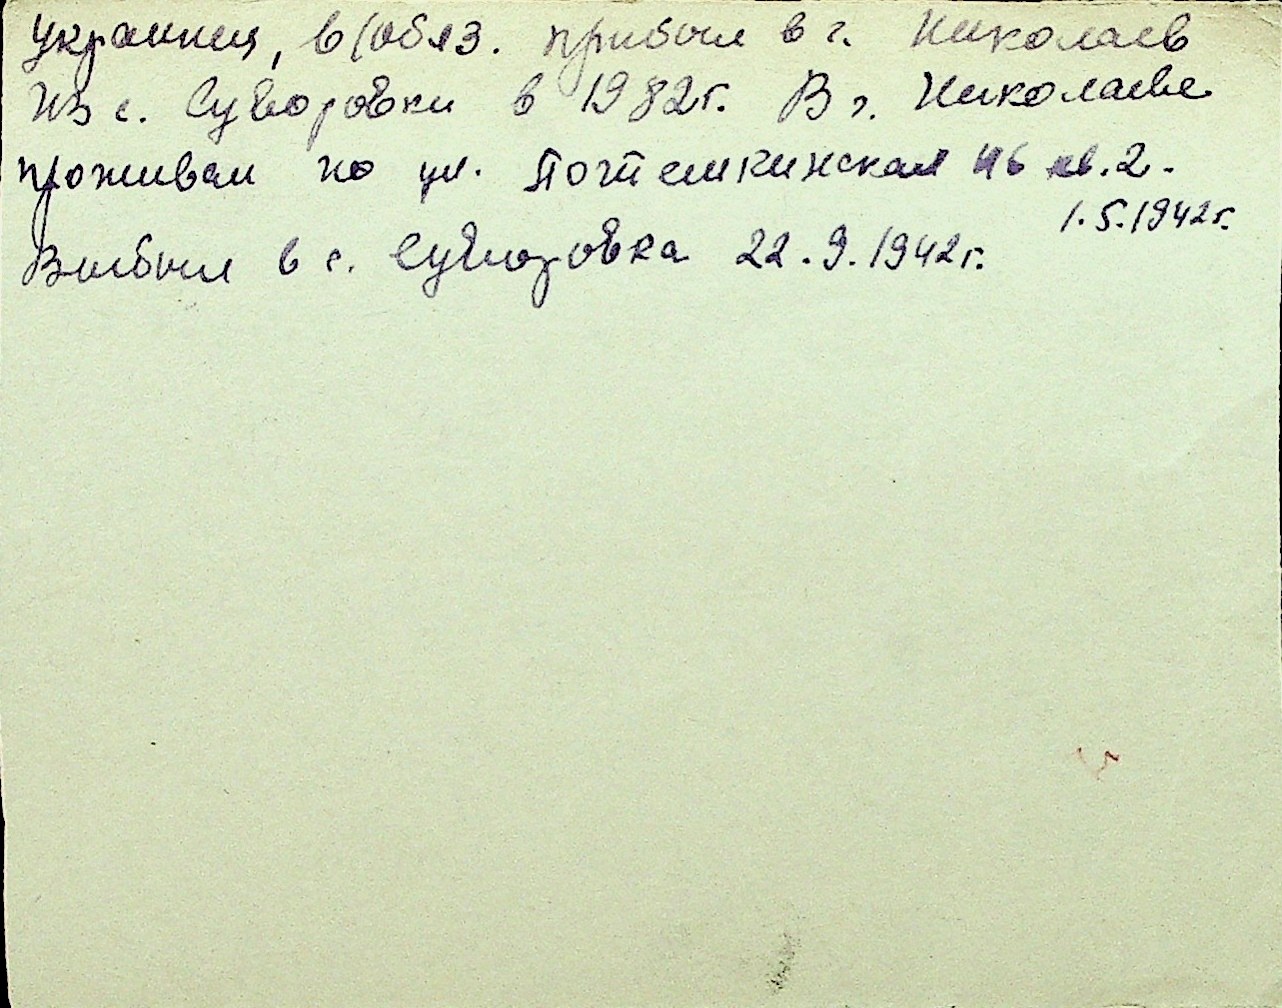 Украинец, в/обяз. прибыл в г. Николаев
из с. Суворовки в 1982г. В г. Николаеве
проживал по ул. Потемкинская 46 кв. 2.
1.5.1942г.
Выбыл в с. Суворовка 22.9.1942г.